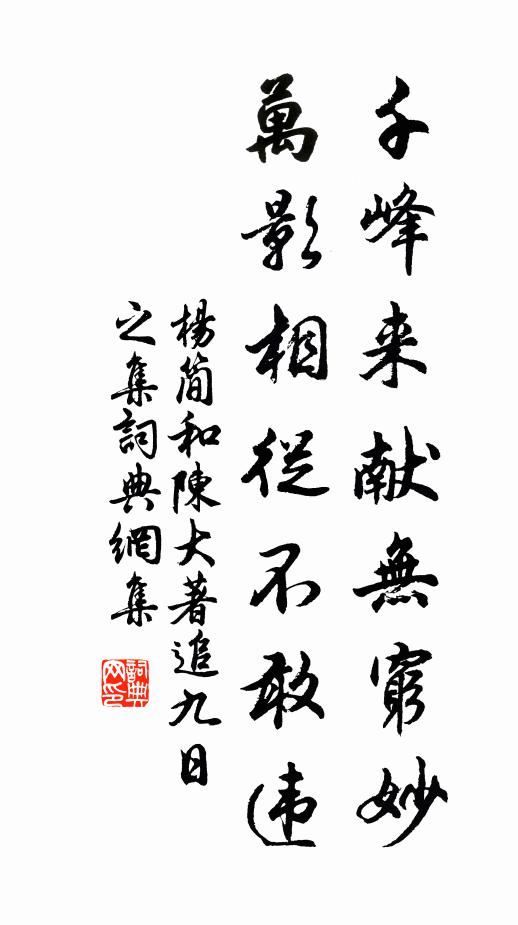 千峰来献無窮妙
萬影相從不敢违
楊简和陳大著追九日
之集詞典網集
詞典网印